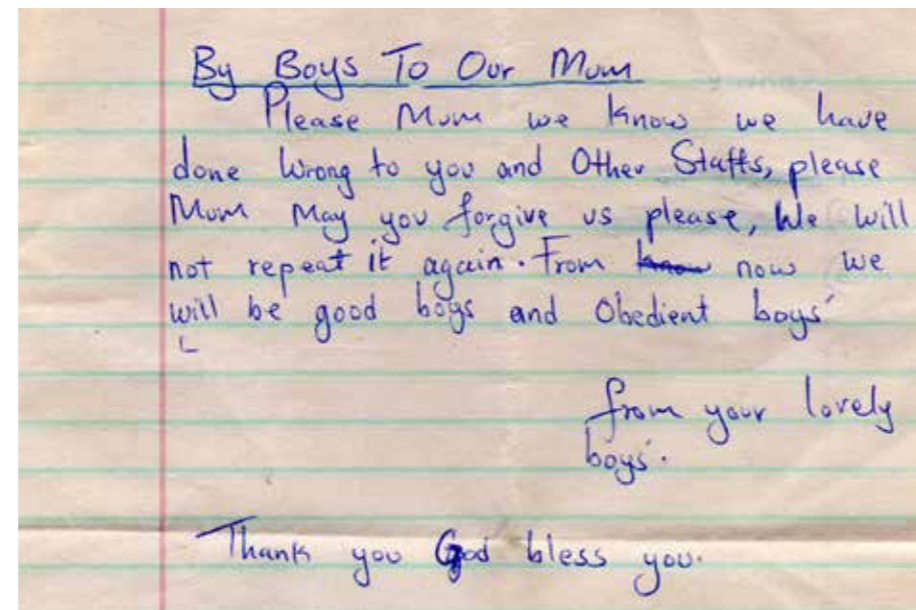 By Boys To Our Mum
Please Mum we know we have
done wrong to you and Other Staffs, please
Mum May you forgive us please, We will
not repeat it again. From know now we
will be good boys and Obedient boys'
from your lovely
boys'.
Thank you God bless you.